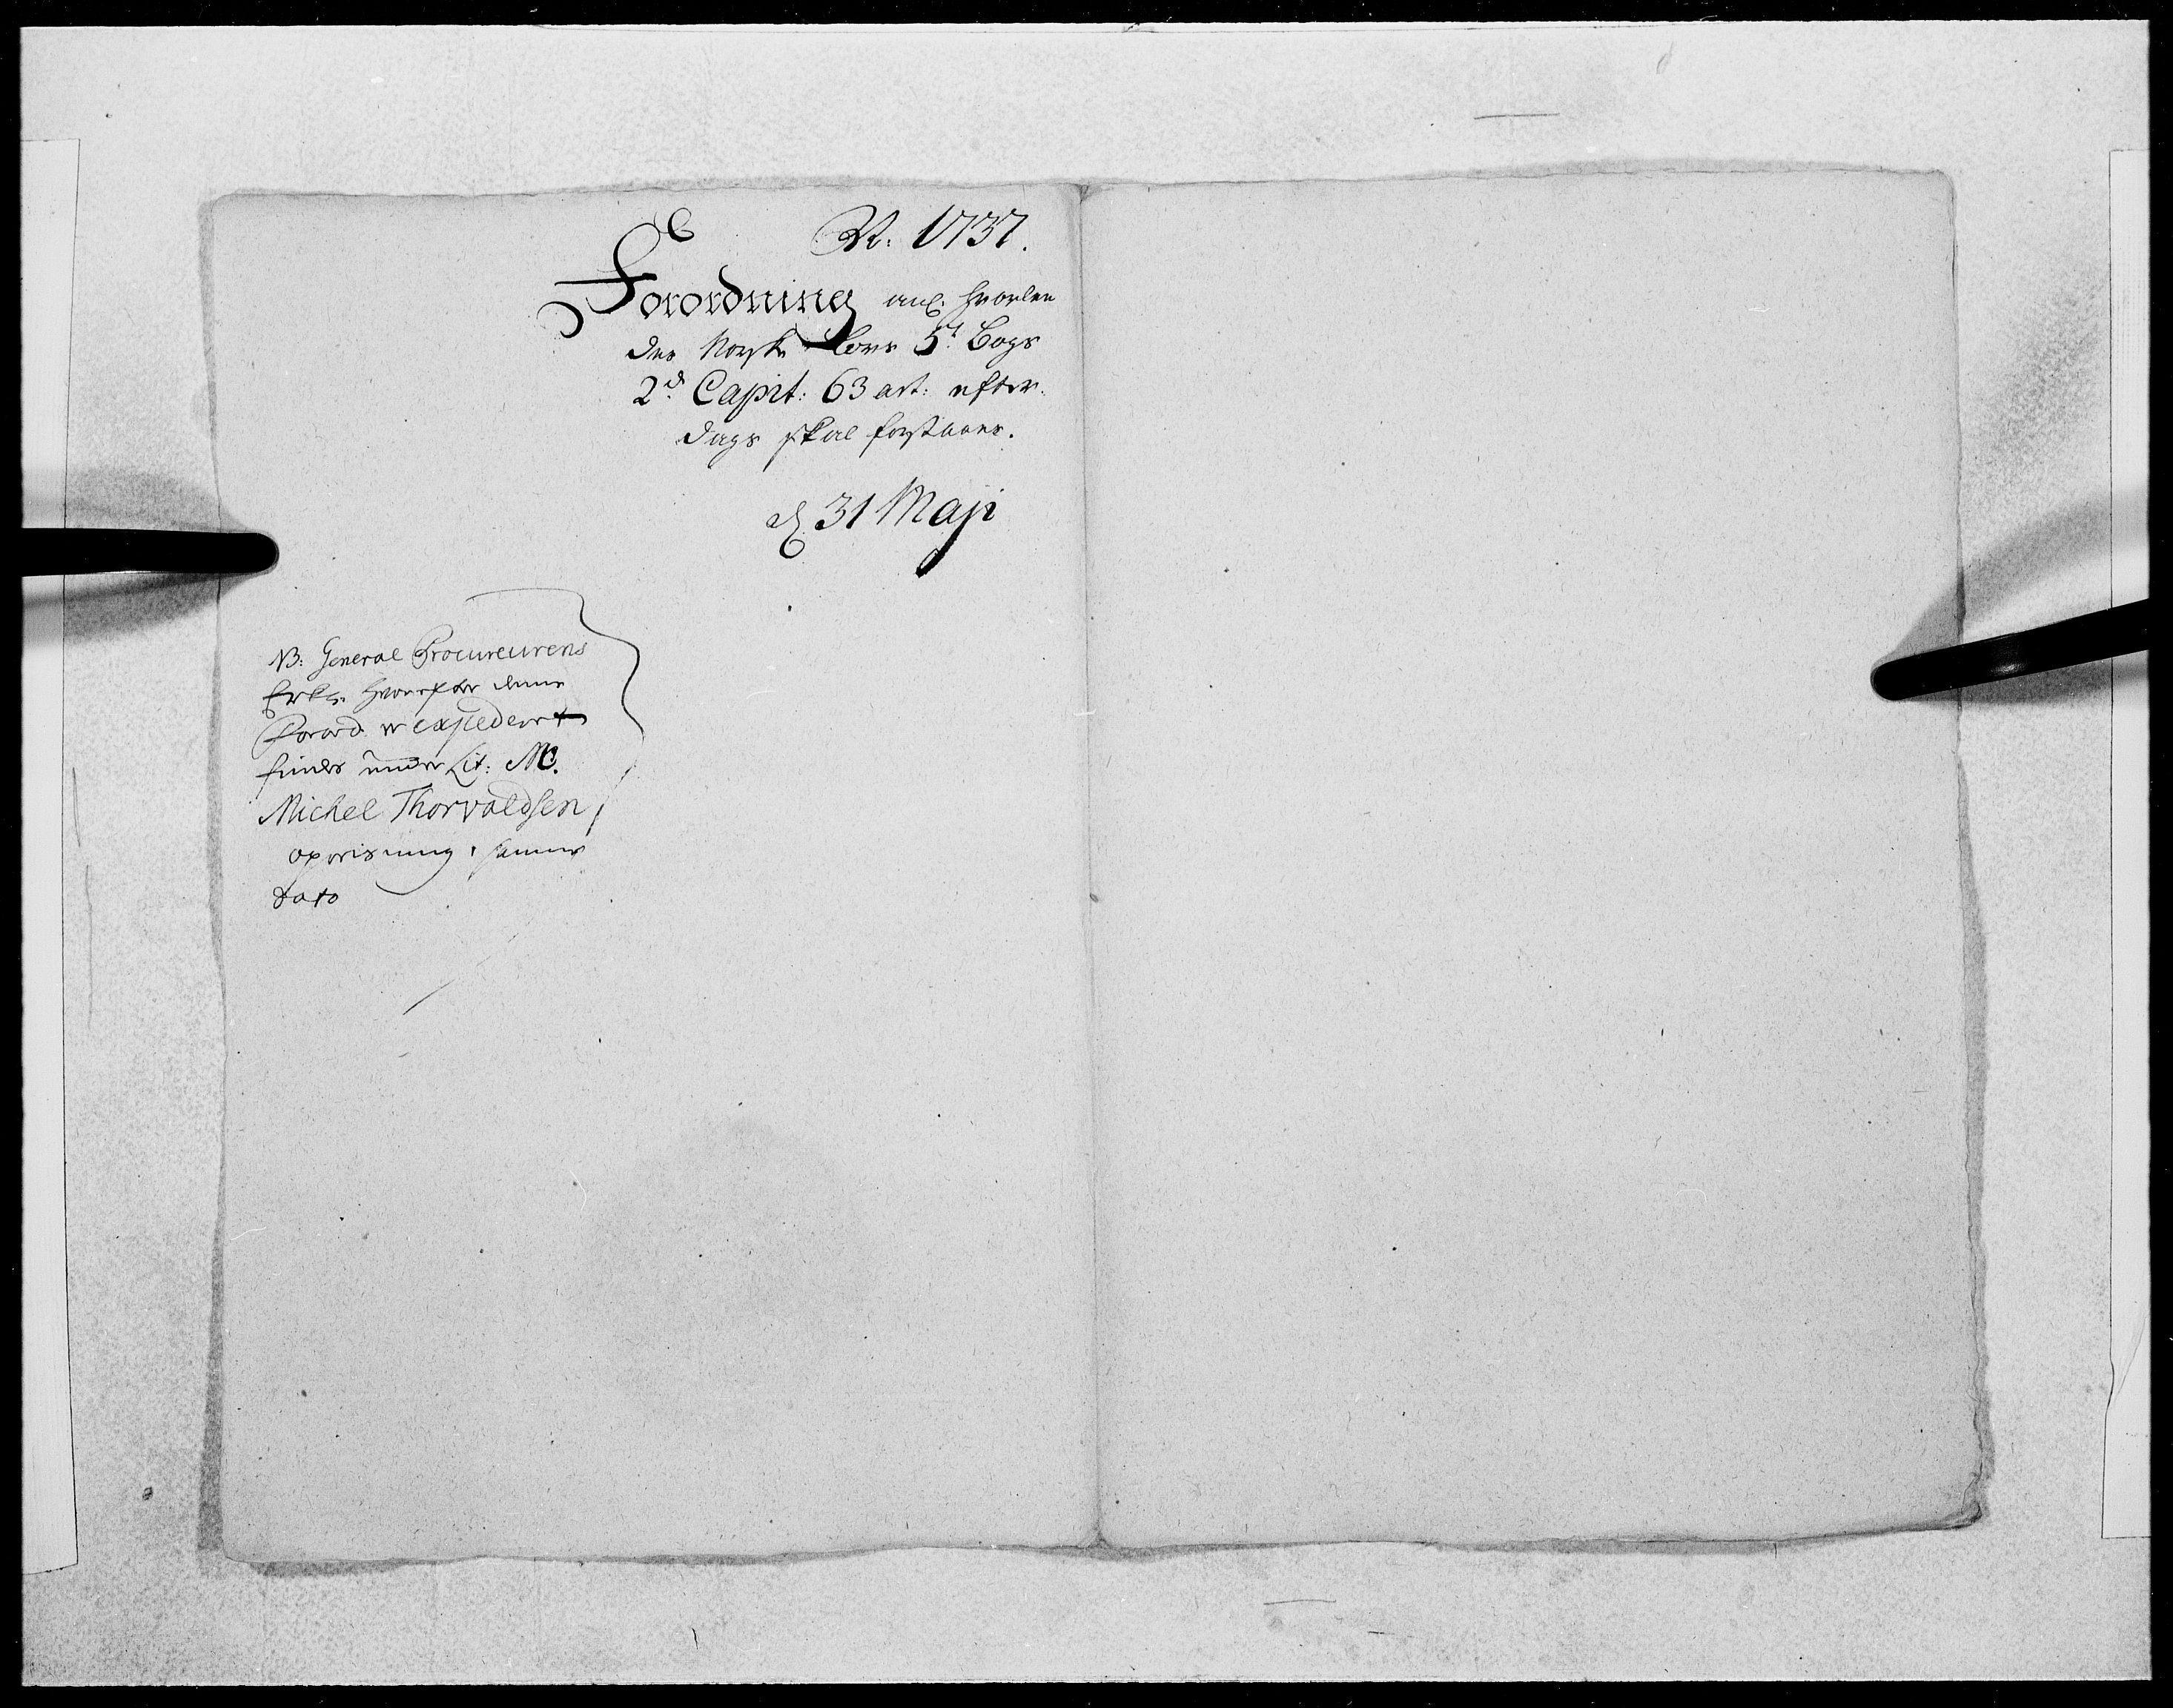 Ao: 1737.
Forordning ang: hvorledes
den Norske Lovs 5t Bogs
2d Capit: 63 art: efter-
dags skal forstaaes.
d 31 Maji
NB: General Procureurens
Erkl: hvorefter denne
Forord er expederet
findes under Lit: M.
Michel Thorvaldsen
opreisning i samme
dato